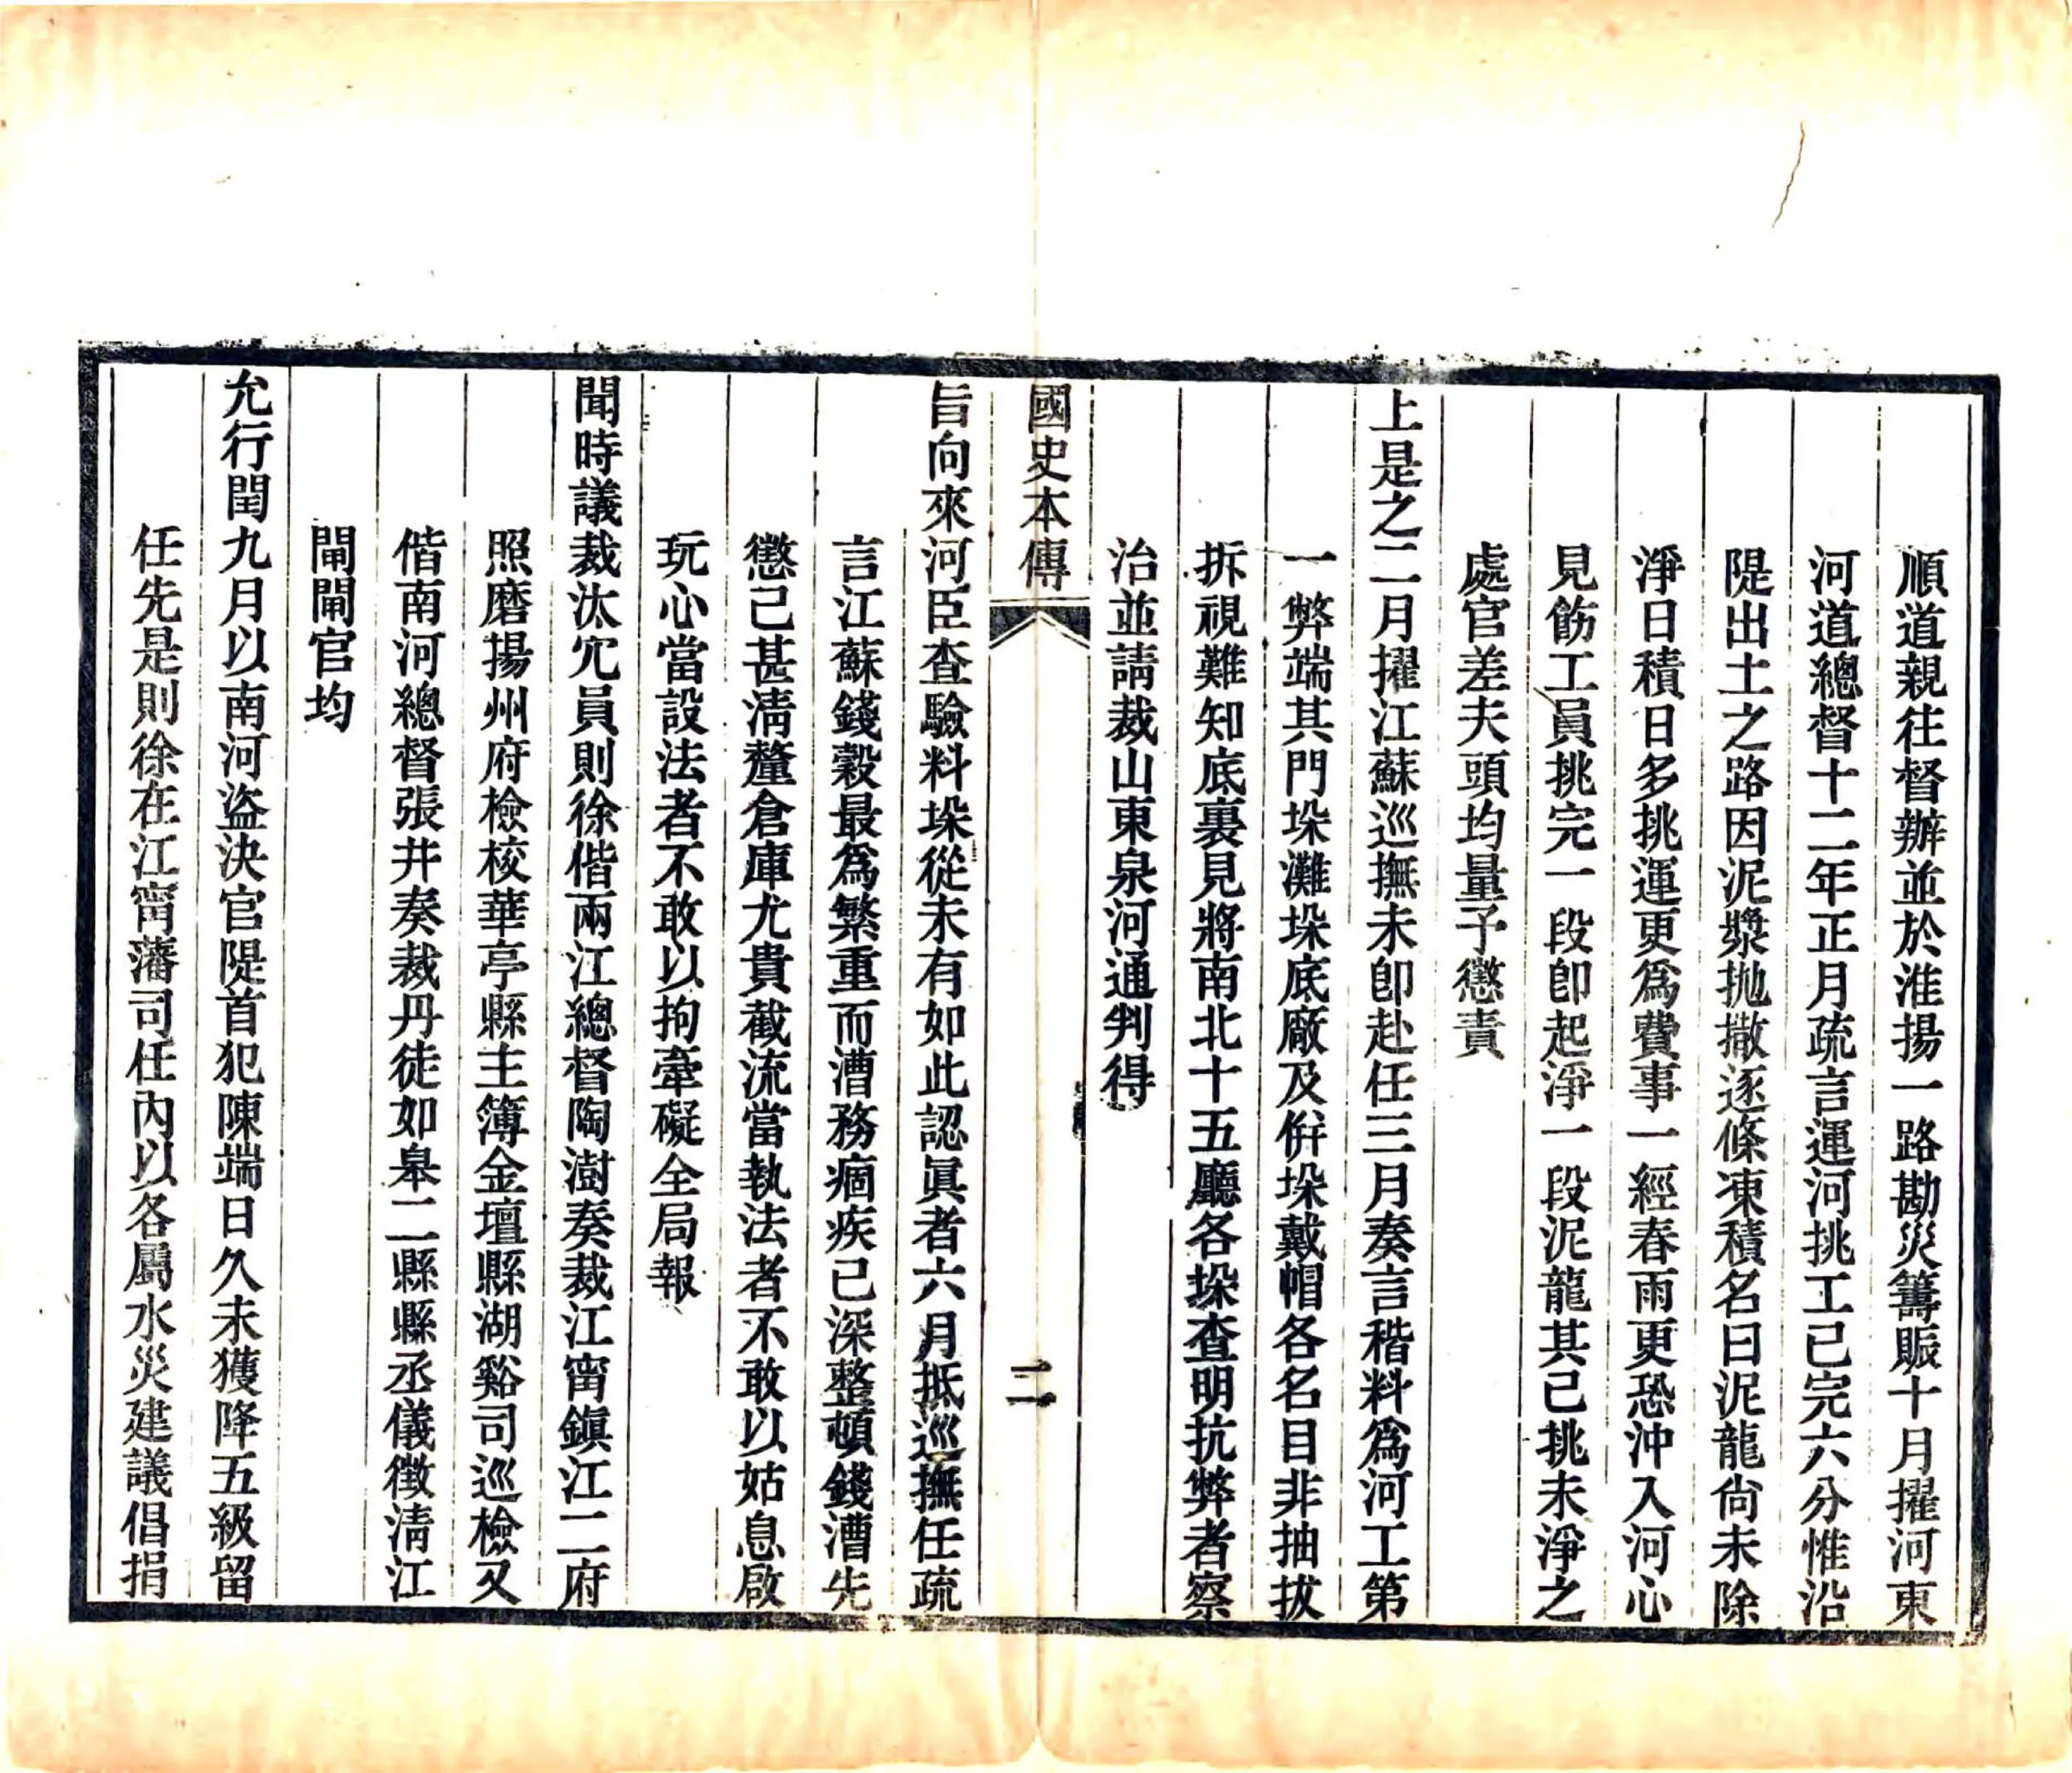 順道親往督辦並於淮揚一路勘災籌賑十月擢河東
河道總督十二年正月疏言運河挑工已完六分惟沿
隄出土之路因泥漿拋撒逐條凍積名曰泥龍尙未除
淨日積日多挑運更爲費事一經春雨更恐沖入河心
見飭工員挑完一段卽起淨一段泥龍其已挑未淨之
處官差夫頭均量予懲責
上是之二月擢江蘇巡撫未卽赴任三月奏言稭料爲河工第
一弊端其門垛灘垛底廠及倂垛戴帽各名目非抽拔
拆視難知底裏見將南北十五廳各垛查明抗弊者察
治並請裁山東泉河通判得
國史本傳
二
旨向來河臣查驗料垛從未有如此認眞者六月抵巡撫任疏
言江蘇錢穀最爲繁重而漕務痼疾已深整頓錢漕先
懲己甚淸釐倉庫尤貴截流當執法者不敢以姑息啟
玩心當設法者不敢以拘牽礙全局報
聞時議裁汰宂員則徐偕兩江總督陶澍奏裁江甯鎭江二府
照磨揚州府檢校華亭縣主簿金壇縣湖谿司巡檢又
偕南河總督張井奏裁丹徒如皋二縣縣丞儀徵淸江
閘閘官均
允行閏九月以南河盜決官隄首犯陳端日久未獲降五級留
任先是則徐在江甯藩司任內以各屬水災建議倡捐